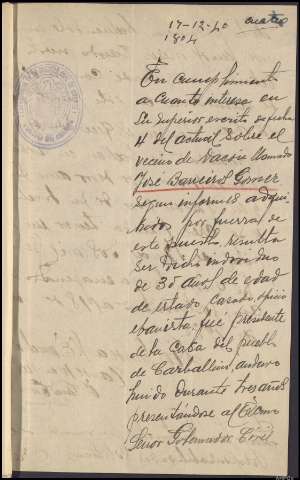 17-12-40 cuatro
1804
En cumplimiento
a cuanto interesa en
Su Superior escrito su fecha
4 del actual sobre el
vecino de Dacon llamado
José Barreiros Gomez
segun informes adqui-
ridos por fuerza de
este puesto, resulta
ser dicho individuo
de 30 años de edad
de estado casado, oficio
evanista, fué presidente
de la Casa del pueblo
de Carballino, anduvo
huido durante tres años
presentándose al Excmo
Señor Gobernador Civil